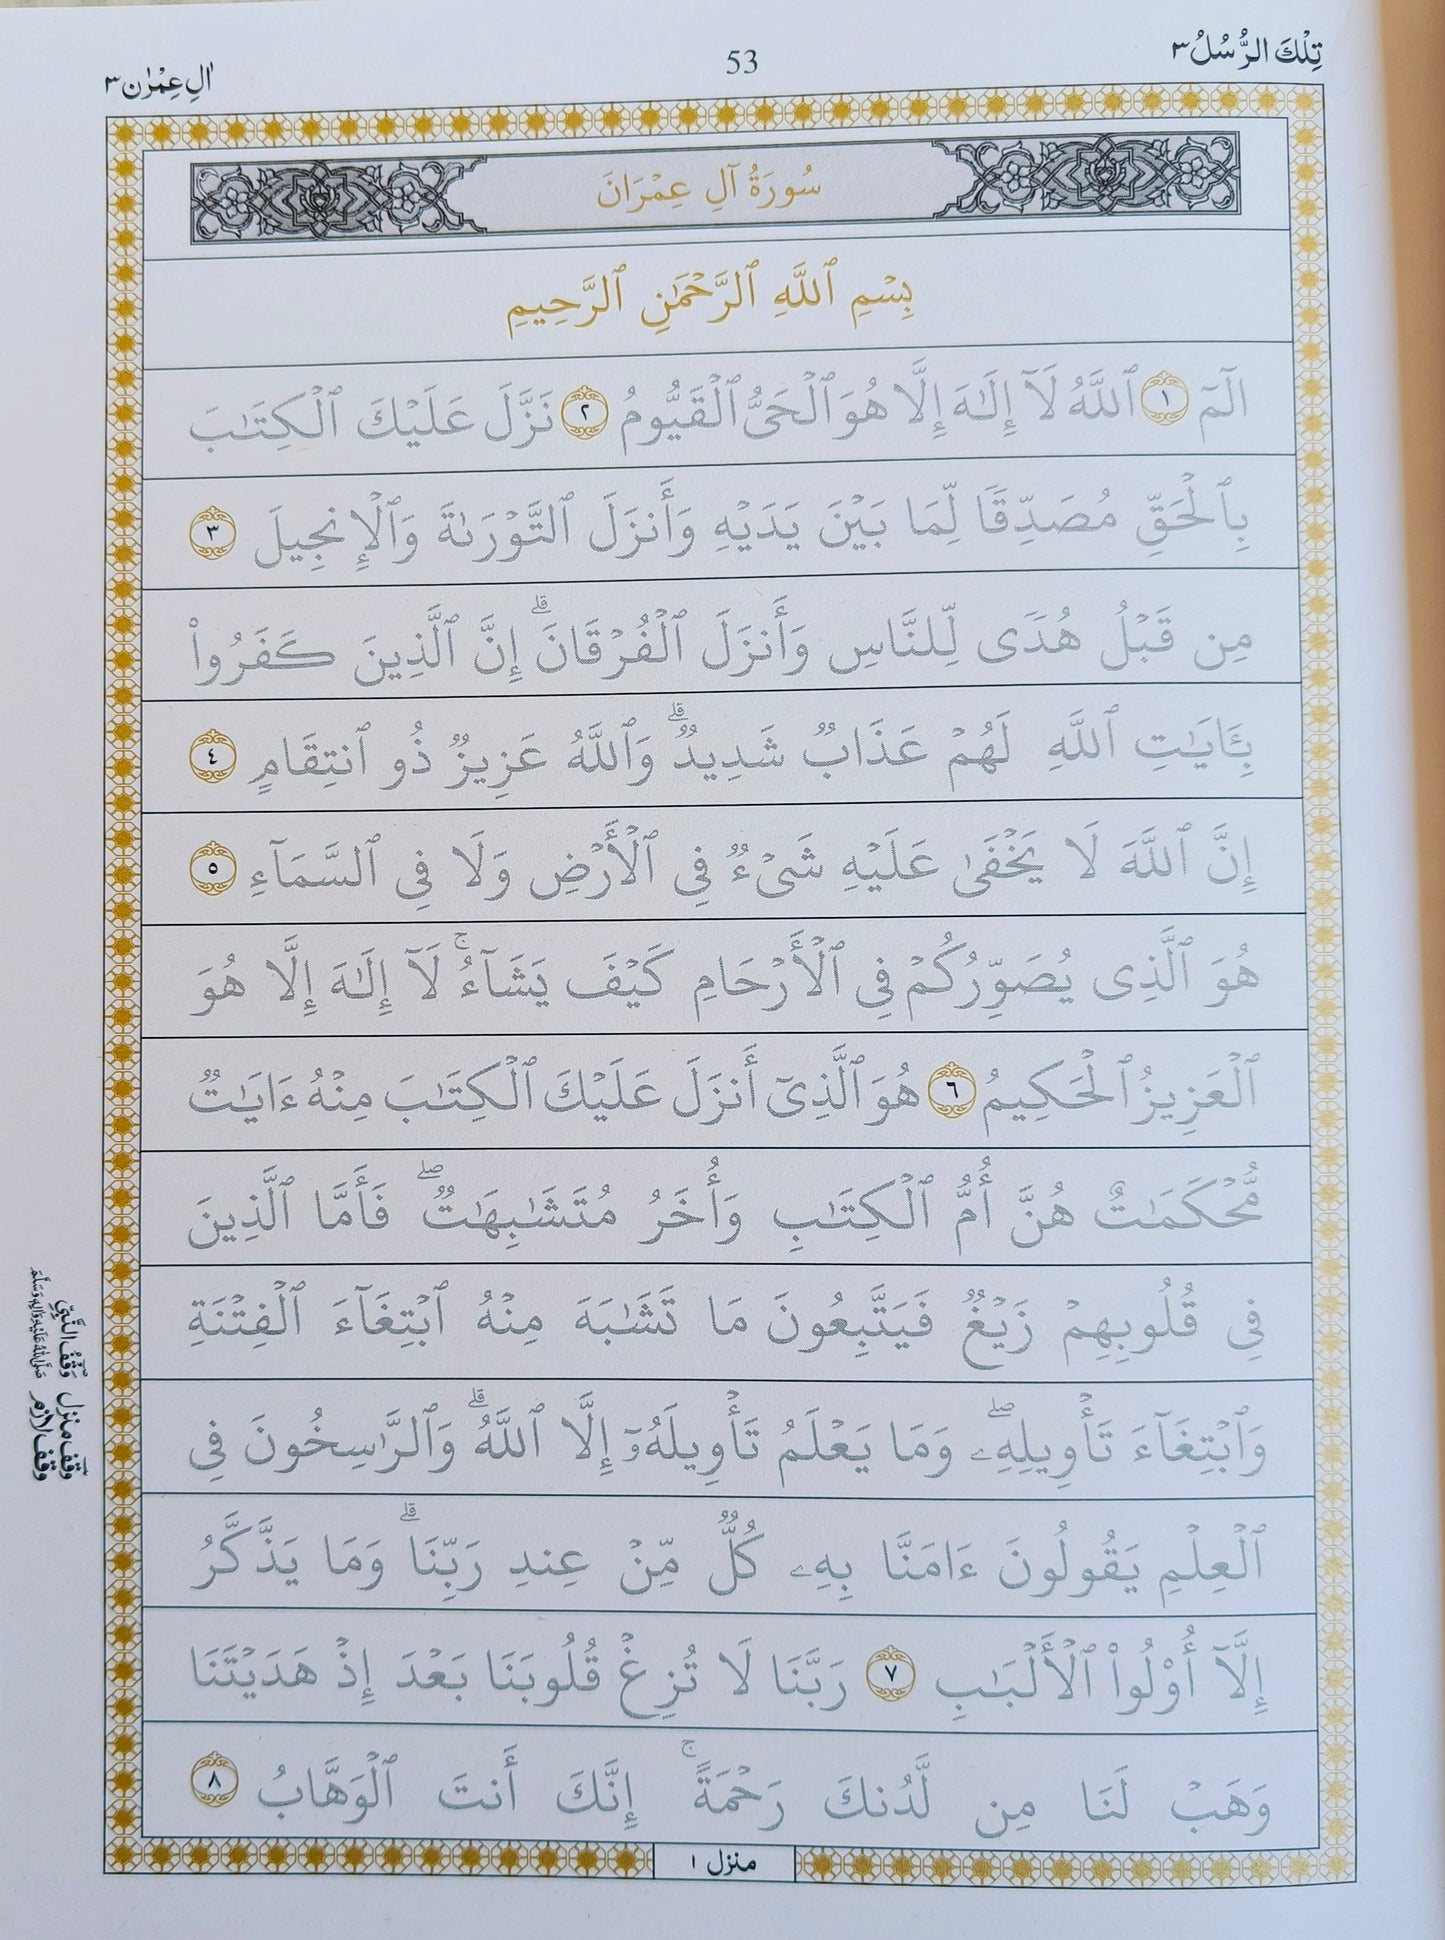 تِلْكَ الرُّسُلُ ٣
53
اٰلِ عِمْرٰن ٣
سُورَةُ آلِ عِمْرَانَ
بِسْمِ ٱللَّهِ ٱلرَّحْمَٰنِ ٱلرَّحِيمِ
الٓمٓ ١ ٱللَّهُ لَآ إِلَٰهَ إِلَّا هُوَ ٱلْحَىُّ ٱلْقَيُّومُ ٢ نَزَّلَ عَلَيْكَ ٱلْكِتَٰبَ
بِٱلْحَقِّ مُصَدِّقًا لِّمَا بَيْنَ يَدَيْهِ وَأَنزَلَ ٱلتَّوْرَىٰةَ وَٱلْإِنجِيلَ ٣
مِن قَبْلُ هُدًى لِّلنَّاسِ وَأَنزَلَ ٱلْفُرْقَانَ ۗ إِنَّ ٱلَّذِينَ كَفَرُوا۟
بِـَٔايَٰتِ ٱللَّهِ لَهُمْ عَذَابٌ شَدِيدٌ ۗ وَٱللَّهُ عَزِيزٌ ذُو ٱنتِقَامٍ ٤
إِنَّ ٱللَّهَ لَا يَخْفَىٰ عَلَيْهِ شَىْءٌ فِى ٱلْأَرْضِ وَلَا فِى ٱلسَّمَآءِ ٥
هُوَ ٱلَّذِى يُصَوِّرُكُمْ فِى ٱلْأَرْحَامِ كَيْفَ يَشَآءُ ۚ لَآ إِلَٰهَ إِلَّا هُوَ
ٱلْعَزِيزُ ٱلْحَكِيمُ ٦ هُوَ ٱلَّذِىٓ أَنزَلَ عَلَيْكَ ٱلْكِتَٰبَ مِنْهُ ءَايَٰتٌ
مُّحْكَمَٰتٌ هُنَّ أُمُّ ٱلْكِتَٰبِ وَأُخَرُ مُتَشَٰبِهَٰتٌ ۖ فَأَمَّا ٱلَّذِينَ
فِى قُلُوبِهِمْ زَيْغٌ فَيَتَّبِعُونَ مَا تَشَٰبَهَ مِنْهُ ٱبْتِغَآءَ ٱلْفِتْنَةِ
وَٱبْتِغَآءَ تَأْوِيلِهِۦ ۖ وَمَا يَعْلَمُ تَأْوِيلَهُۥٓ إِلَّا ٱللَّهُ ۗ وَٱلرَّٰسِخُونَ فِى
ٱلْعِلْمِ يَقُولُونَ ءَامَنَّا بِهِۦ كُلٌّ مِّنْ عِندِ رَبِّنَا ۗ وَمَا يَذَّكَّرُ
إِلَّآ أُو۟لُوا۟ ٱلْأَلْبَٰبِ ٧ رَبَّنَا لَا تُزِغْ قُلُوبَنَا بَعْدَ إِذْ هَدَيْتَنَا
وَهَبْ لَنَا مِن لَّدُنكَ رَحْمَةً ۚ إِنَّكَ أَنتَ ٱلْوَهَّابُ ٨
منزل ١
وَقْفُ النَّبِيِّ صَلَّى اللهُ عَلَيْهِ وَآلِهِ وَسَلَّمَ
وقف منزل
وقف لازم